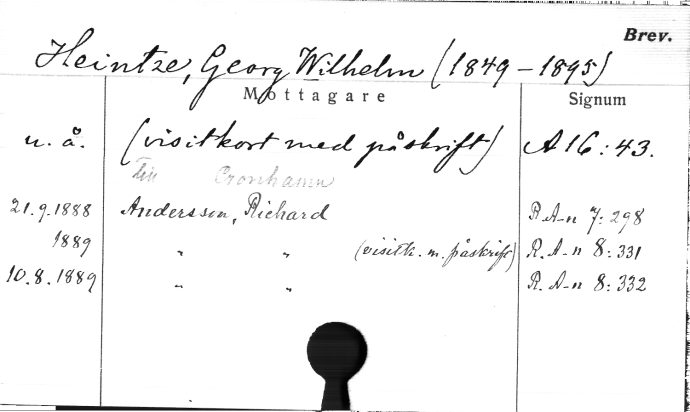 Brev.
Heintze, Georg Wilhelm (1849-1895)
Mottagare Signum
u. å. (visitkort med påskrift) A 16:43.
Till Cronhamn
21.9.1888 Andersson, Richard R. A-n 7:298
1889 " " (visitk. m. påskrift) R. A-n 8:331
10.8.1889 " " R. A-n 8:332